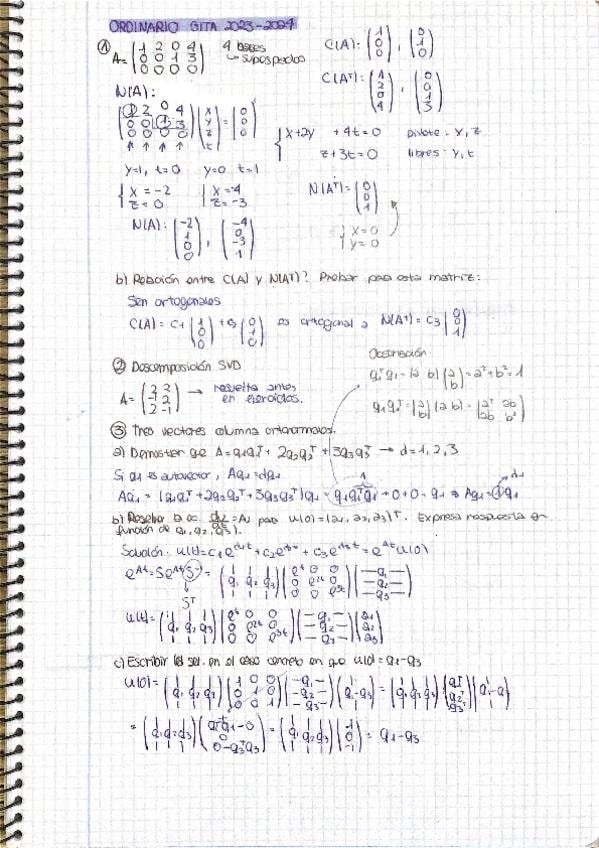 ORDINARIO GITA 2023-2024
① A = (1 2 0 4; 0 0 1 3; 0 0 0 0) 4 bases ↳ subespacios C(A): (1 0 0), (0 1 0)
C(Aᵀ): (1 2 0 4), (0 0 1 3)
N(A):
(1 2 0 4; 0 0 1 3; 0 0 0 0) (x y z t) = (0 0 0) { x+2y +4t=0 pivote: x, z
z+3t=0 libres: y, t
y=1, t=0 y=0 t=1
{ x=-2 z=0 { x=-4 z=-3 N(Aᵀ) = (0 0 1)
N(A): (-2 1 0 0), (-4 0 -3 1) { x=0 y=0
b) Relación entre C(A) y N(Aᵀ)? Probar para esta matriz:
Son ortogonales
C(A) = c₁ (1 0 0) + c₂ (0 1 0) es ortogonal a N(Aᵀ) = c₃ (0 0 1)
② Descomposición SVD
A = (2 2; -1 2; 2 -1) → resuelta antes en ejercicios.
Observación
q₁ᵀq₁ = (a b) (a b) = a²+b² = 1
q₁q₁ᵀ = (a b) (a b) = (a² ab; ab b²)
③ Tres vectores columna ortonormales.
a) Demostrar que A = q₁q₁ᵀ + 2q₂q₂ᵀ + 3q₃q₃ᵀ → d = 1, 2, 3
Si q₁ es autovector, Aq₁ = dq₁
Aq₁ = (q₁q₁ᵀ + 2q₂q₂ᵀ + 3q₃q₃ᵀ)q₁ = q₁q₁ᵀq₁ + 0 + 0 = q₁ ⇒ Aq₁ = 1q₁
b) Resolver la ec. du/dt = Au para u(0) = (a₁, a₂, a₃)ᵀ. Expresa respuesta en
función de q₁, q₂, q₃).
Solución: u(t) = c₁e^{d₁t} + c₂e^{d₂t} + c₃e^{d₃t} = e^{At}u(0)
e^{At} = Se^{Λt}S⁻¹ = (q₁ q₂ q₃) (eᵗ 0 0; 0 e²ᵗ 0; 0 0 e³ᵗ) (—q₁— —q₂— —q₃—)
Sᵀ
u(t) = (q₁ q₂ q₃) (eᵗ 0 0; 0 e²ᵗ 0; 0 0 e³ᵗ) (—q₁— —q₂— —q₃—) (a₁ a₂ a₃)
c) Escribir la sol. en el caso concreto en que u(0) = q₁-q₃
u(0) = (q₁ q₂ q₃) (1 0 0; 0 1 0; 0 0 1) (—q₁— —q₂— —q₃—) (q₁-q₃) = (q₁ q₂ q₃) (q₁ᵀ q₂ᵀ q₃ᵀ)
= (q₁ q₂ q₃) (q₁ᵀq₁-0 0 0-q₃ᵀq₃) = (q₁ q₂ q₃) (1 0 -1) = q₁-q₃